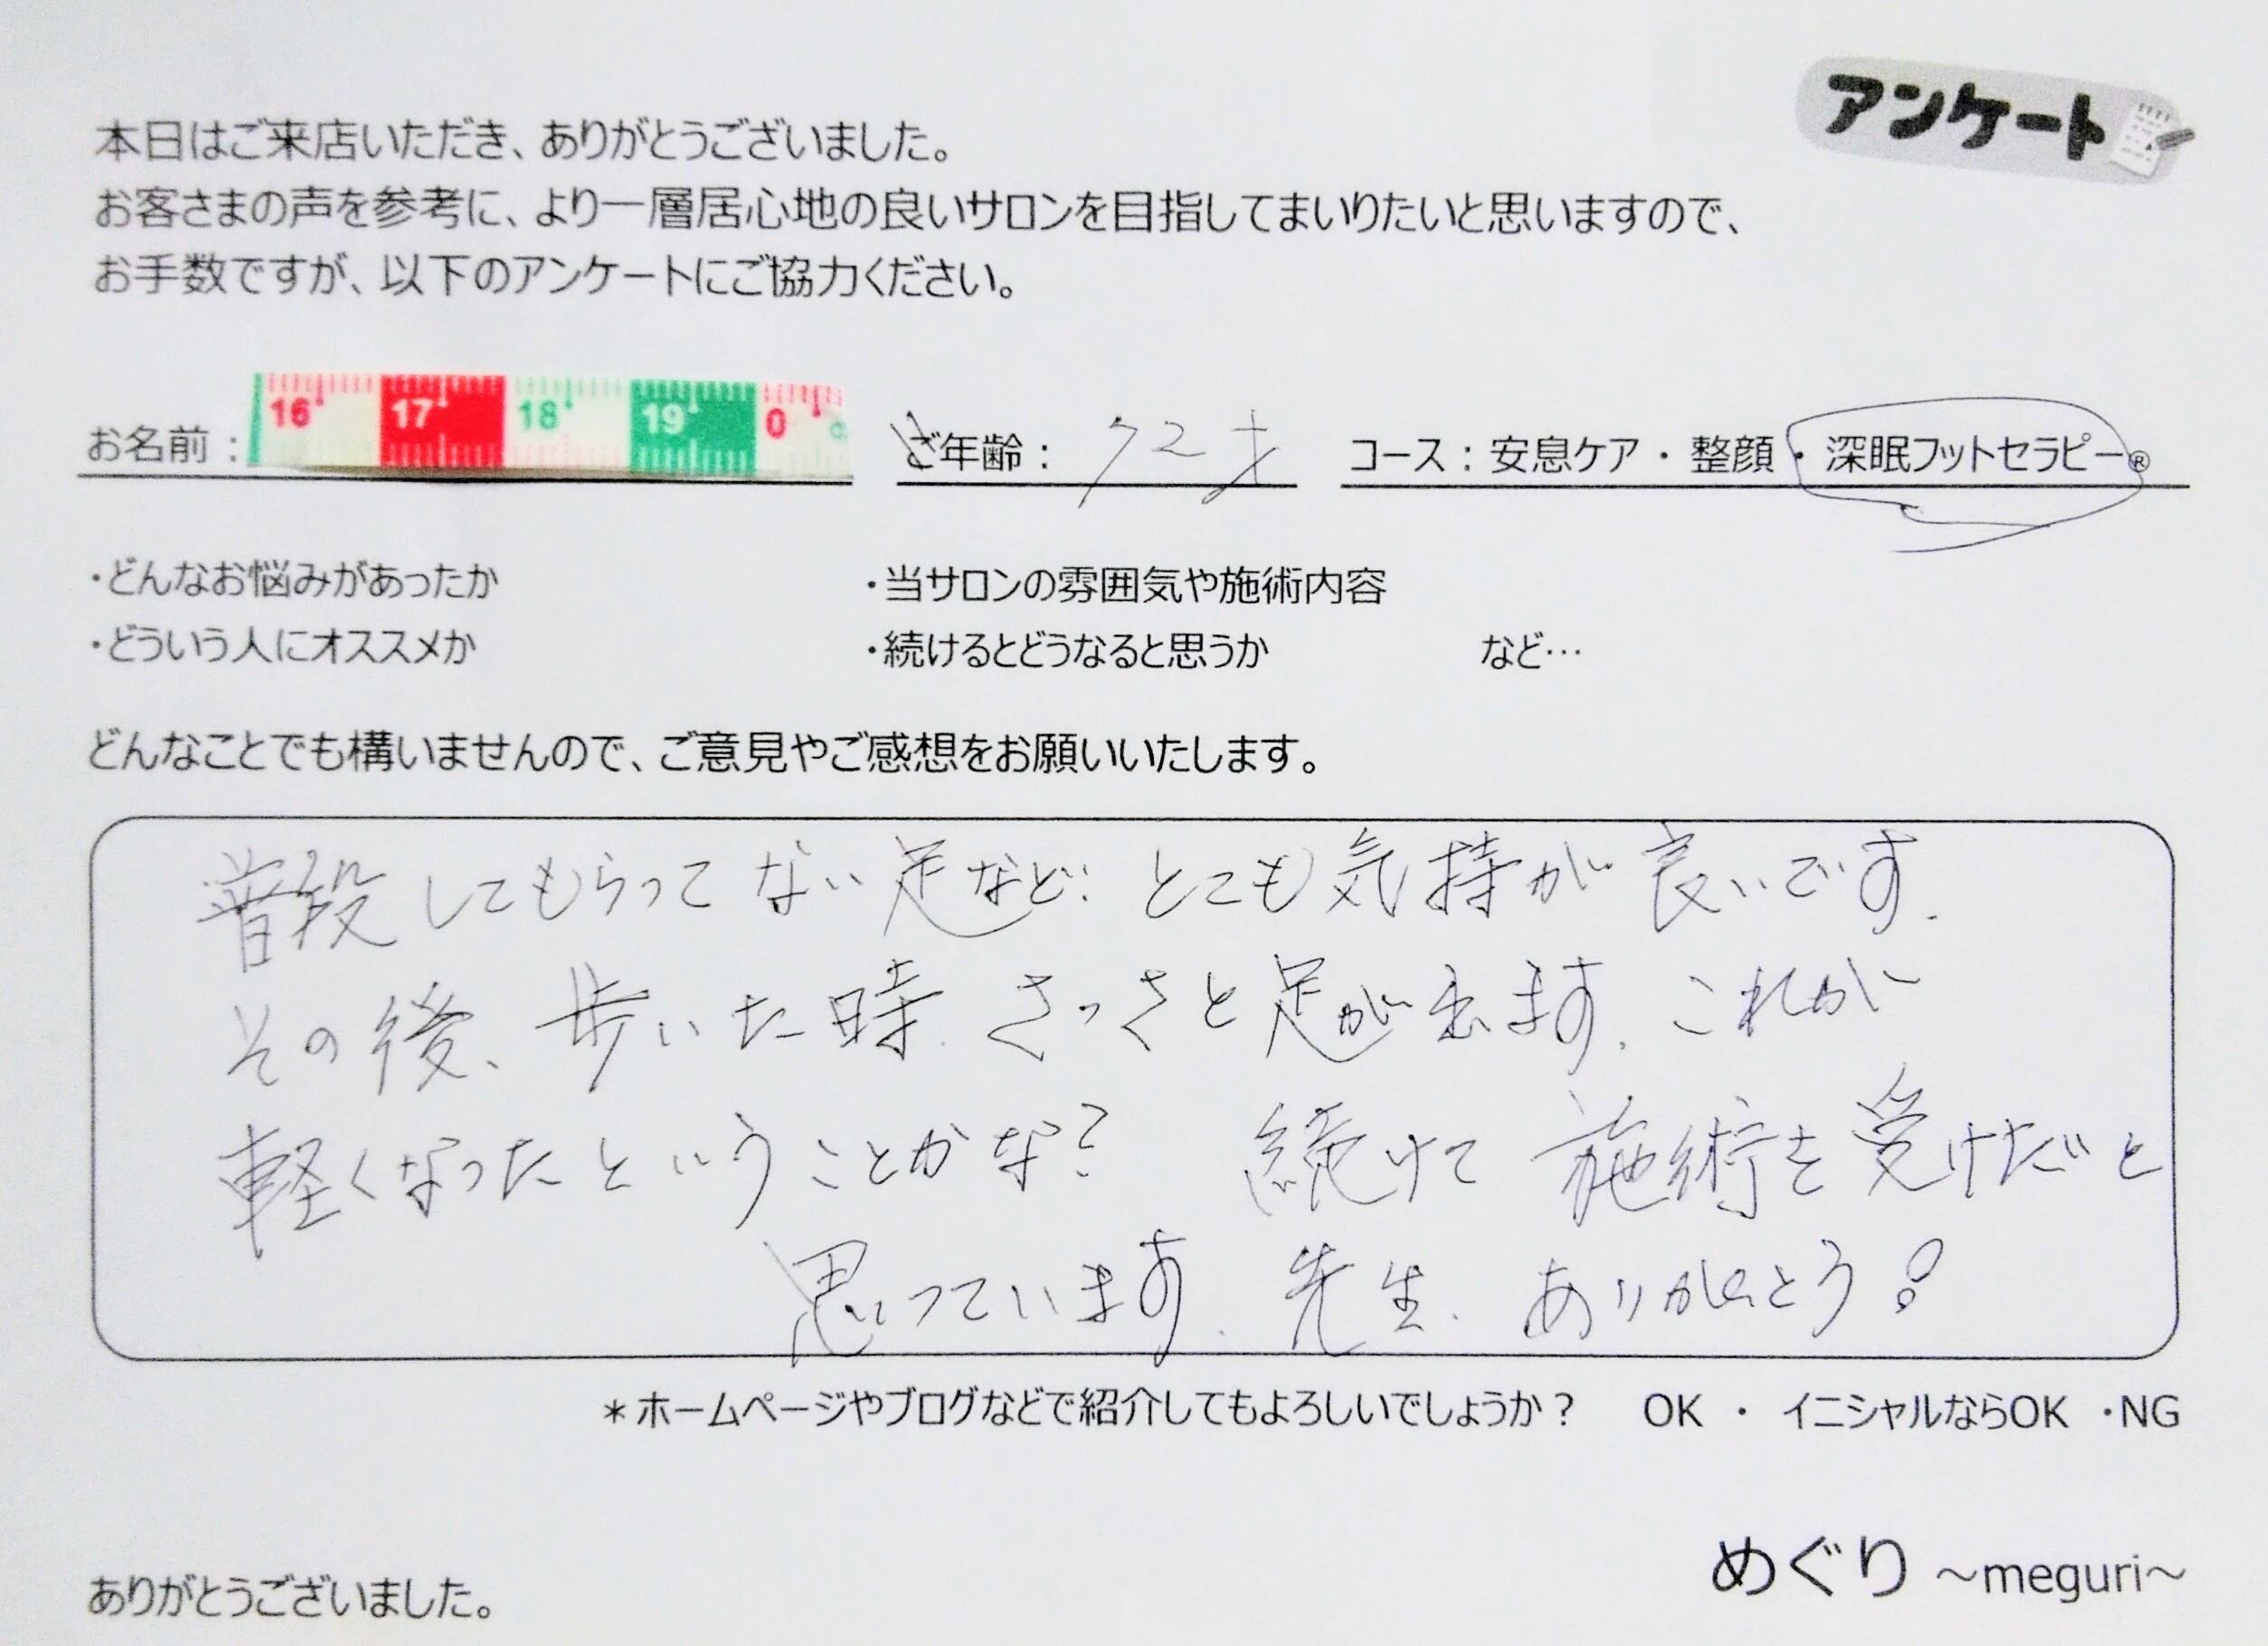 アンケート
本日はご来店いただき、ありがとうございました。
お客さまの声を参考に、より一層居心地の良いサロンを目指してまいりたいと思いますので、
お手数ですが、以下のアンケートにご協力ください。
お名前： 16 17 18 19 0 ご年齢： 72才 コース：安息ケア・整顔・深眠フットセラピー®
・どんなお悩みがあったか ・当サロンの雰囲気や施術内容
・どういう人にオススメか ・続けるとどうなると思うか など…
どんなことでも構いませんので、ご意見やご感想をお願いいたします。
普段してもらってない足など: とても気持が良いです.
その後、歩いた時、さっさと足が出ます. これが
軽くなったということかな? 続けて施術を受けたいと
思っています. 先生. ありがとう!
＊ホームページやブログなどで紹介してもよろしいでしょうか？ OK ・ イニシャルならOK ・NG
めぐり ～meguri～
ありがとうございました。